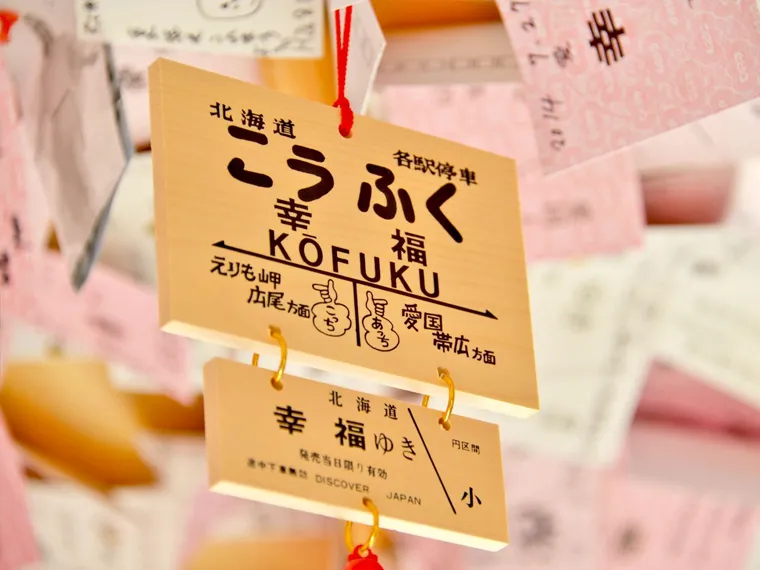 2014 7. 27
幸
北海道
各駅停車
こうふく
幸 福
KŌFUKU
えりも岬
広尾方面
こっち
あっち
愛国
帯広方面
北海道
幸福ゆき
円区間
発売当日限り有効
途中下車無効 DISCOVER JAPAN
小